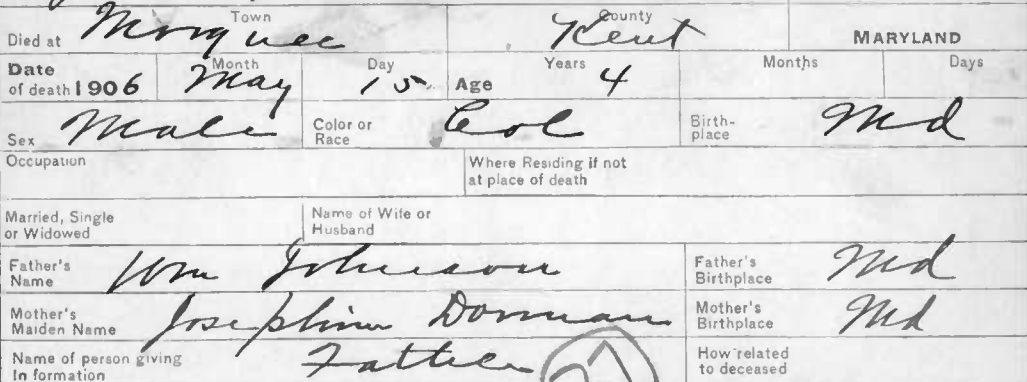 Town County
Died at Morgnec Kent MARYLAND
Month Day Years Months Days
Date of death 1906 May 15 Age 4
Sex Male Color or Race Col Birth-place Md
Occupation Where Residing if not at place of death
Married, Single or Widowed Name of Wife or Husband
Father's Name Wm Johnson Father's Birthplace Md
Mother's Maiden Name Josephine Dorman Mother's Birthplace Md
Name of person giving In formation Father How related to deceased